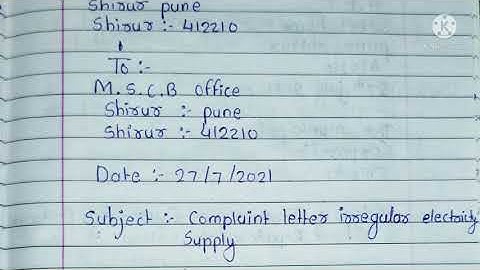 Shirur pune
Shirur :- 412210
To :-
M.S.C.B office
Shirur :- pune
Shirur :- 412210
Date :- 27/7/2021
Subject :- Complaint letter irregular electricity
Supply